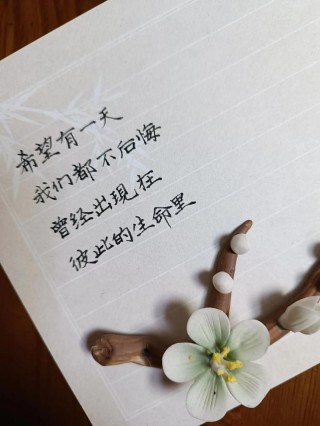 希望有一天
我们都不后悔
曾经出現在
彼此的生命里